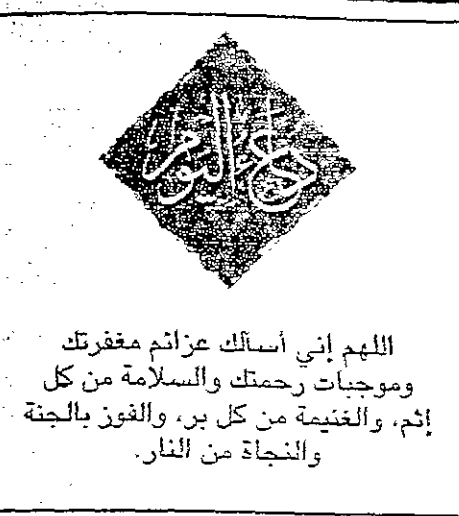 دعاء اليوم
اللهم إني أسألك عزائم مغفرتك
وموجبات رحمتك والسلامة من كل
إثم، والغنيمة من كل بر، والفوز بالجنة
والنجاة من النار.